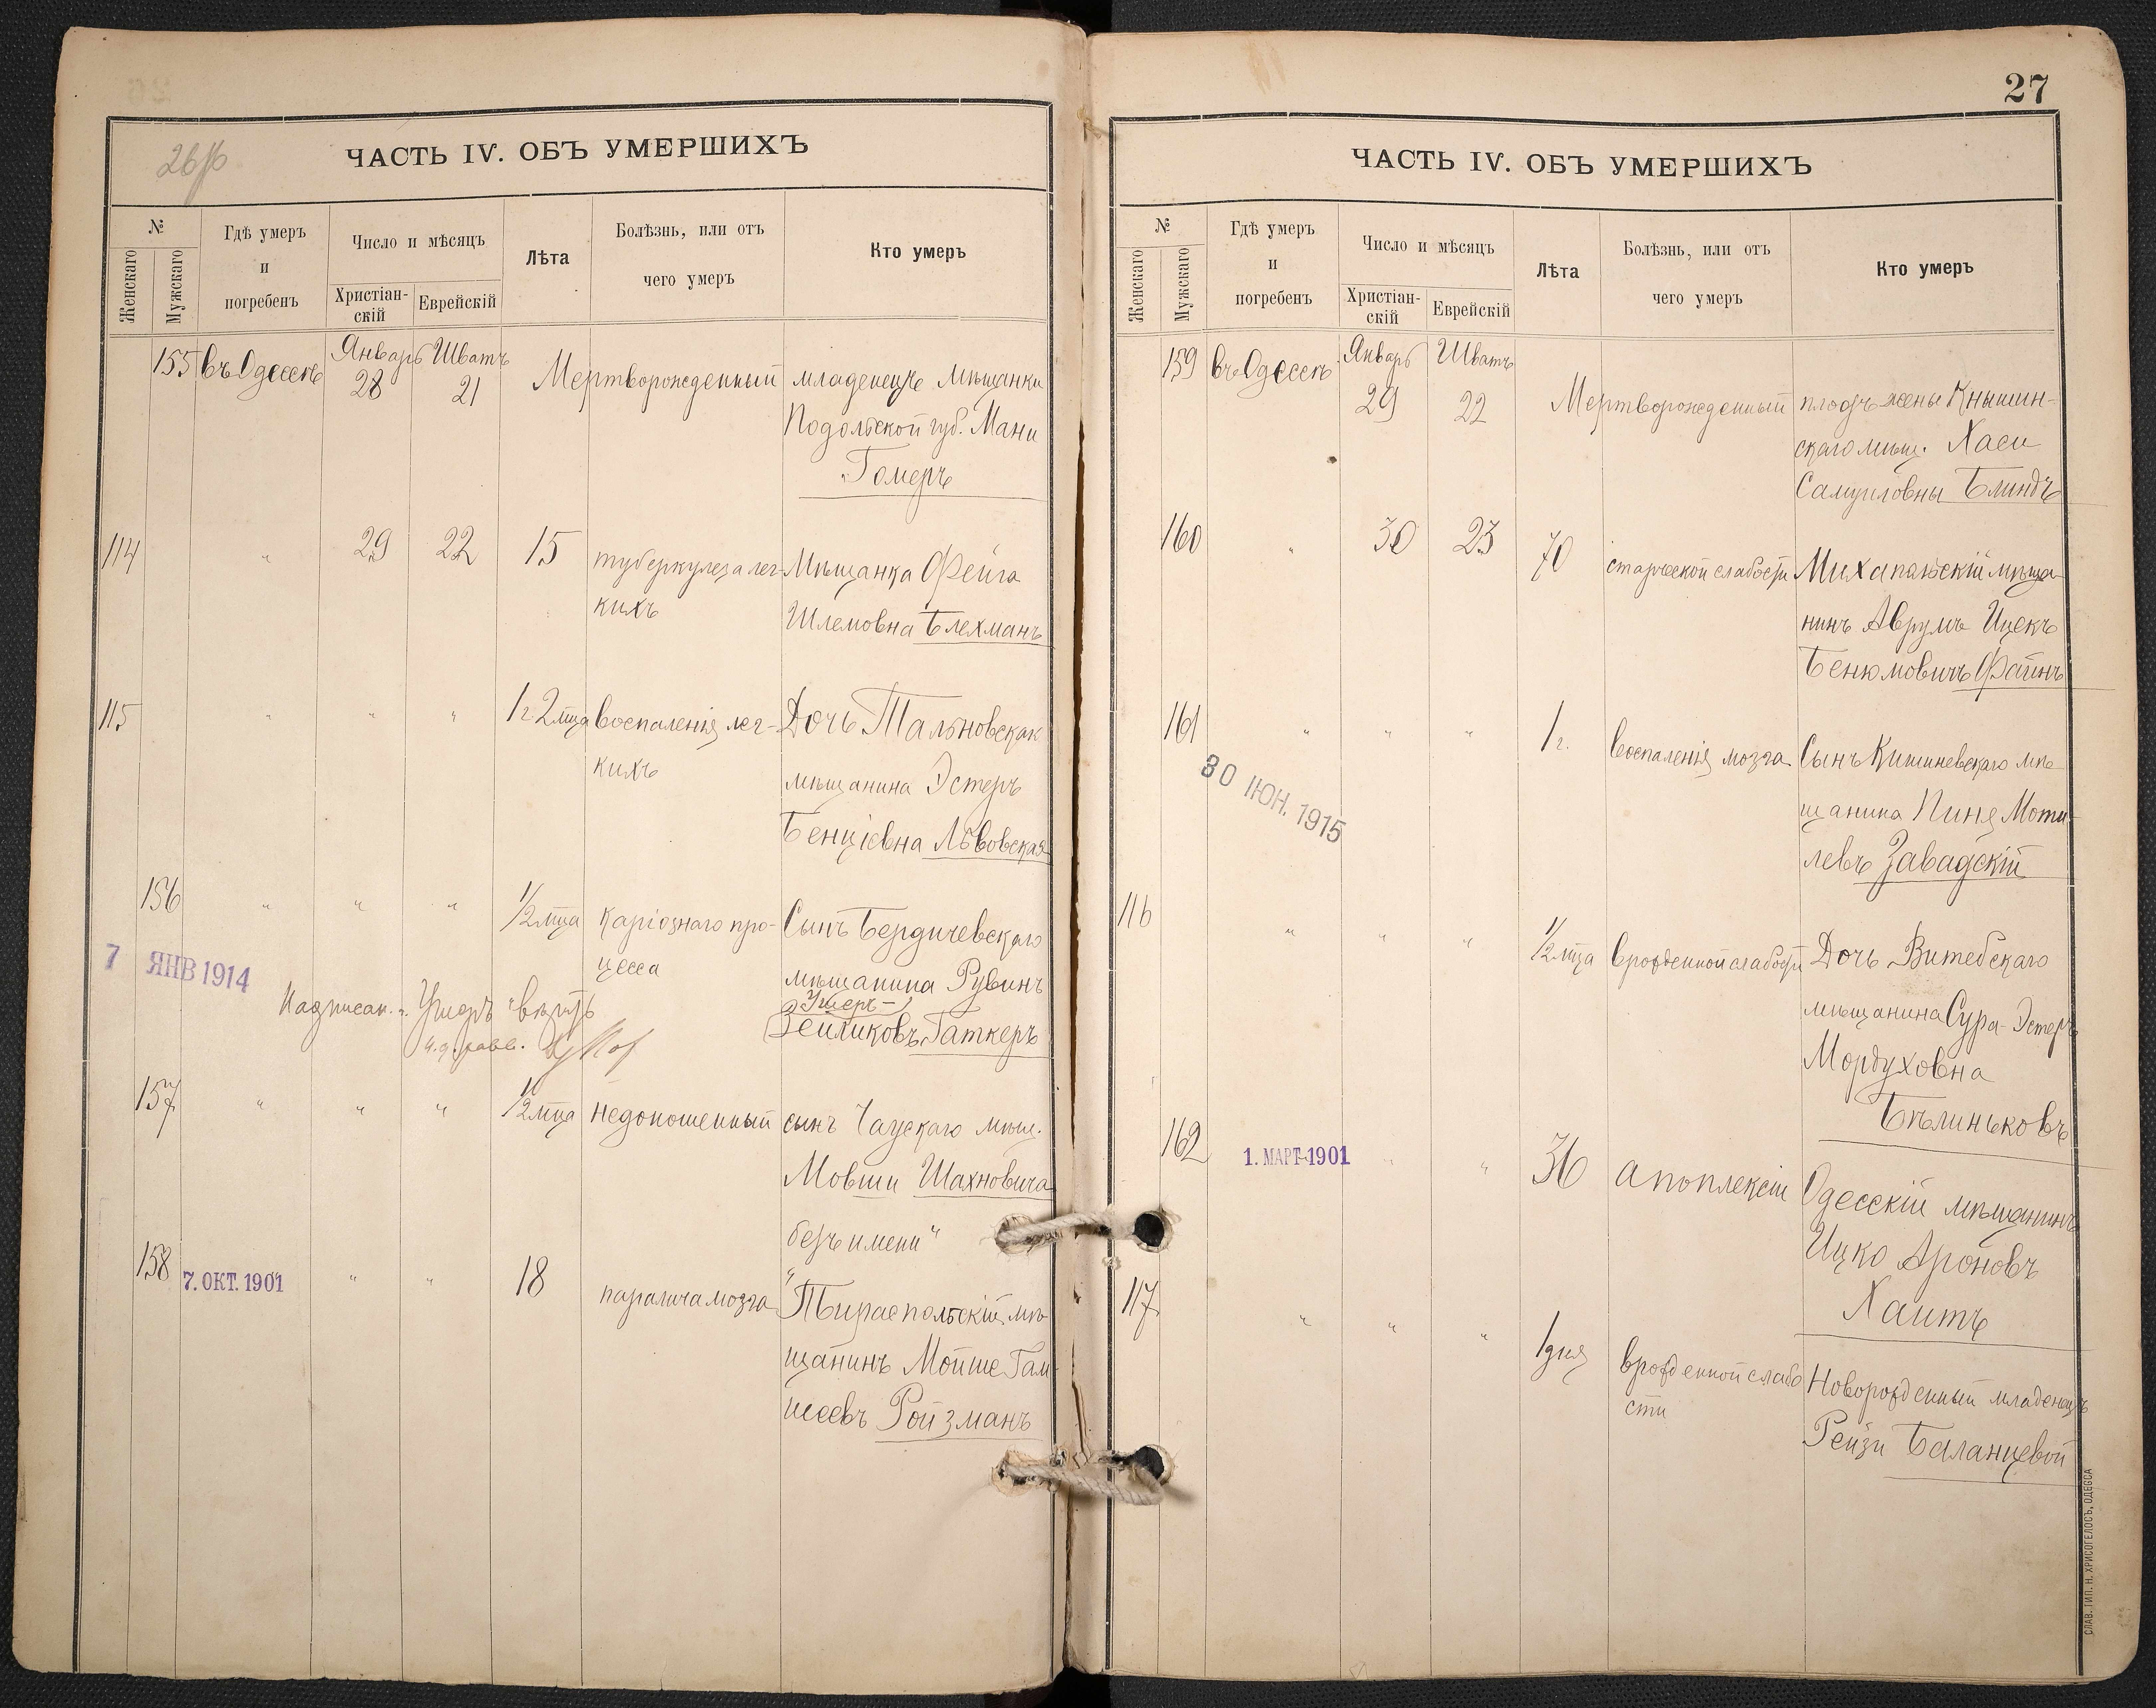 26/об
ЧАСТЬ IV. ОБЪ УМЕРШИХЪ
№
Женскаго
Мужскаго
Гдѣ умеръ
и
погребенъ
Число и мѣсяцъ
Христіан-
скій
Еврейскій
Лѣта
Болѣзнь, или отъ
чего умеръ
Кто умеръ
155 въ Одессѣ Январь 28 Шватъ 21 Мертворожденный младенецъ мѣщанки
Подольской губ. Мани
Гомеръ
114 " 29 22 15 туберкулеза лег- Мѣщанка Фейга
кихъ Шлемовна Блехманъ
115 " " " 1 г 2 мца воспаленія лег- Дочь Тальновскаг
кихъ мѣщанина Эстеръ
Бенціевна Львовская
156 " " " 1/2 мца каріознаго про- Сынъ Бердичевскаго
цесса мѣщанина Рувинъ
Ушеръ-
Зейликовъ Гаткеръ
7 ЯНВ 1914
Надписан. „Ушеръ" вѣрить
и.д. равв.
157 " " " 1/2 мца недоношенный сынъ Чаускаго мѣщ.
Мовши Шахновича
безъ имени"
158 " " " 18 паралича мозга Тираспольскій мѣ-
7. ОКТ. 1901
щанинъ Мойше Гам-
шеевъ Ройзманъ
27
ЧАСТЬ IV. ОБЪ УМЕРШИХЪ
№
Женскаго
Мужскаго
Гдѣ умеръ
и
погребенъ
Число и мѣсяцъ
Христіан-
скій
Еврейскій
Лѣта
Болѣзнь, или отъ
чего умеръ
Кто умеръ
159 въ Одессѣ Январь 29 Шватъ 22 Мертворожденный плодъ жены Кнышин-
скаго мѣщ. Хаси
Самуиловны Блиндъ
160 " 30 23 70 старческой слабости мѣща-
нинъ Аврумъ Ицекъ
Бенюмовичъ Файнъ
161 " " " 1 г. воспаленія мозга Сынъ Кишиневскаго мѣ-
30 ІЮН. 1915
щанина Пиня Моти-
левъ Завадскій
116 " " " 1/2 мца врожденной слабости Дочь Витебскаго
мѣщанина Сура-Эстеръ
Мордуховна
Бѣлиньковъ
162 1. МАРТ 1901 " " 36 апоплексіи Одесскій мѣщанинъ
Ицко Ароновъ
Хаитъ
117 " " " 1 дня врожденной слабо Новорожденный младенецъ
сти Рейзи Баланцевой
СЛАВ. ТИП. Н. ХРИСОГЕЛОСЪ, ОДЕССА